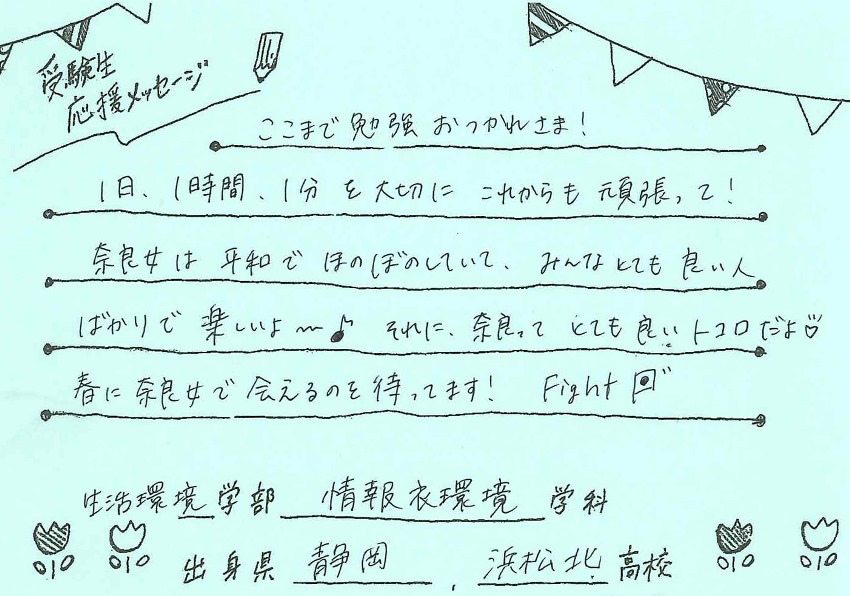 受験生
応援メッセージ
ここまで勉強おつかれさま!
1日、1時間、1分を大切にこれからも頑張って!
奈良女は平和でほのぼのしていて、みんなとても良い人
ばかりで楽しいよ〜♪ それに、奈良ってとても良いトコロだよ♡
春に奈良女で会えるのを待ってます! Fight
生活環境学部 情報衣環境学科
出身県 静岡、浜松北高校